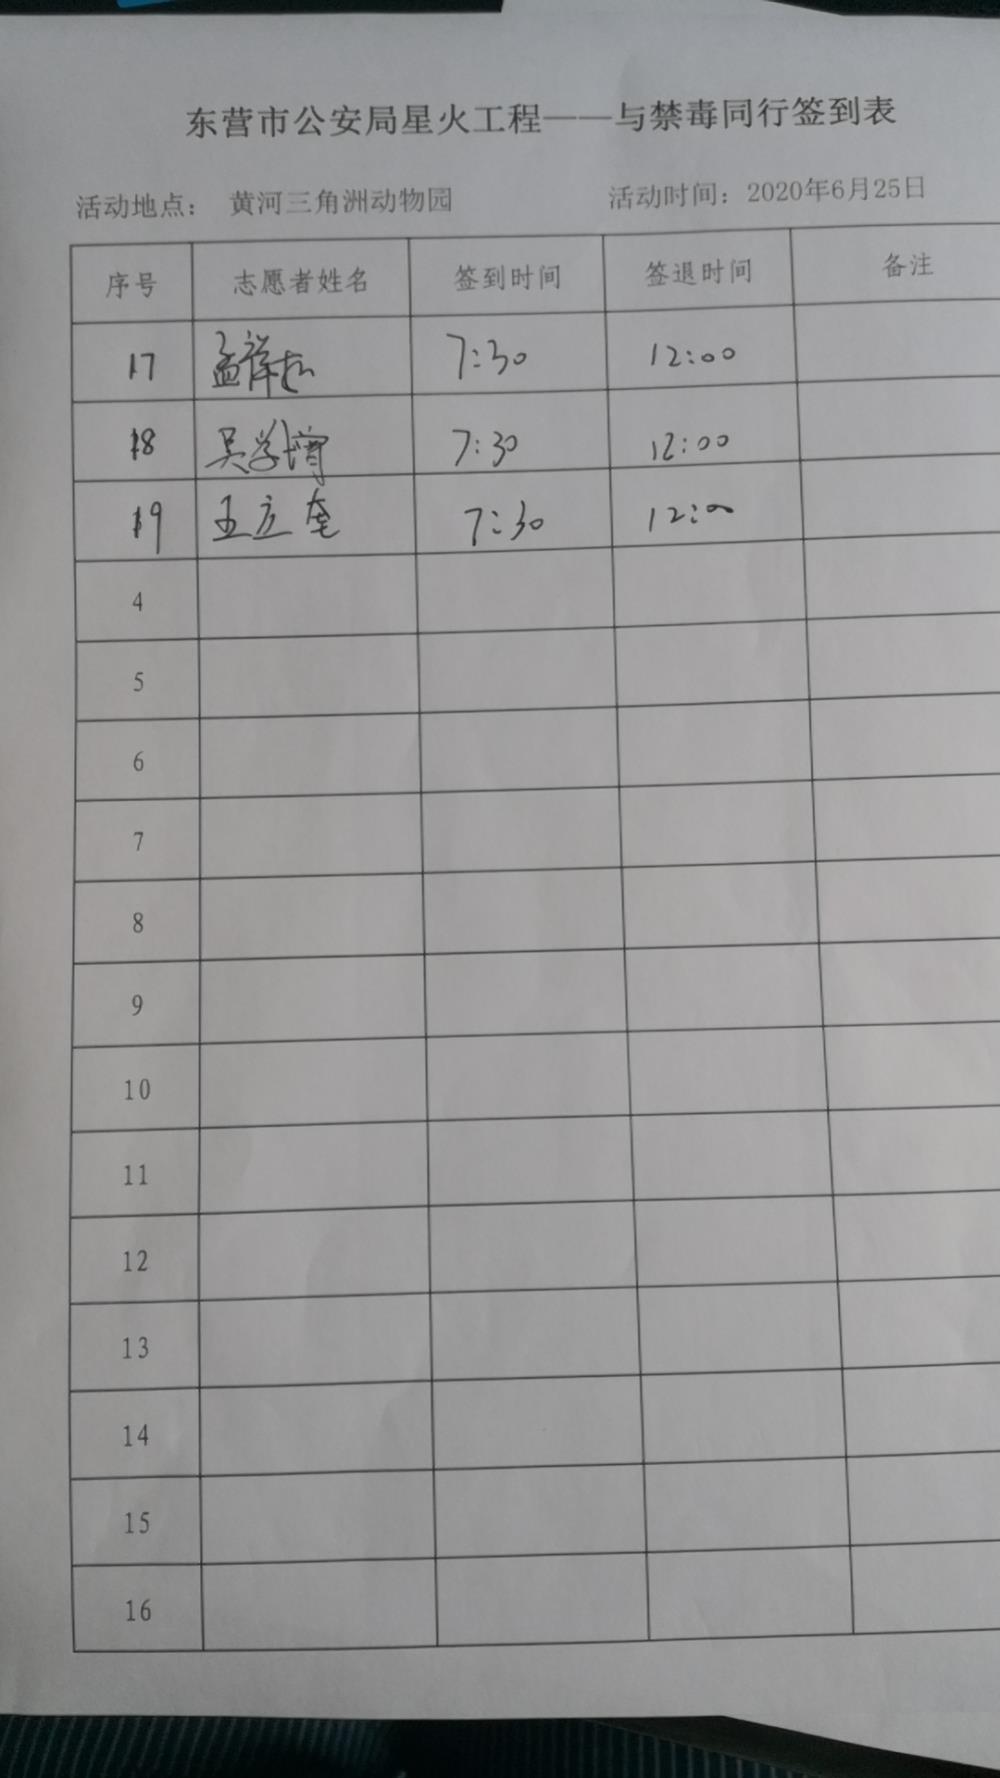 东营市公安局星火工程——与禁毒同行签到表
活动地点： 黄河三角洲动物园 活动时间：2020年6月25日
序号 志愿者姓名 签到时间 签退时间 备注
17 孟祥 7:30 12:00
18 吴学增 7:30 12:00
19 王立奎 7:30 12:00
4
5
6
7
8
9
10
11
12
13
14
15
16